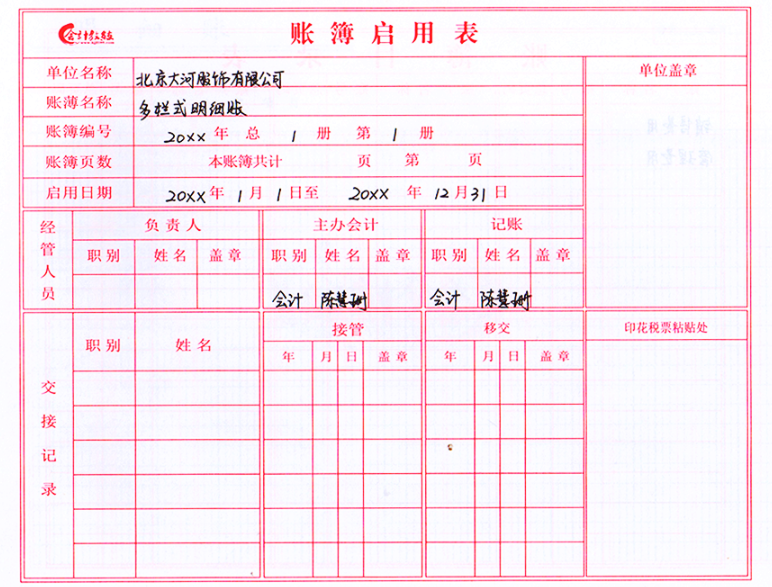 会计教练
账簿启用表
单位名称 北京大河服饰有限公司 单位盖章
账薄名称 多栏式明细账
账簿编号 20xx 年 总 1 册 第 1 册
账簿页数 本账簿共计 页 第 页
启用日期 20XX 年 1 月 1 日至 20XX 年 12 月 31 日
经管人员 负责人 主办会计 记账
职别 姓名 盖章 职别 姓名 盖章 职别 姓名 盖章
会计 陈慧珊 会计 陈慧珊
交接记录 职别 姓名 接管 移交 印花税票粘贴处
年 月 日 盖章 年 月 日 盖章